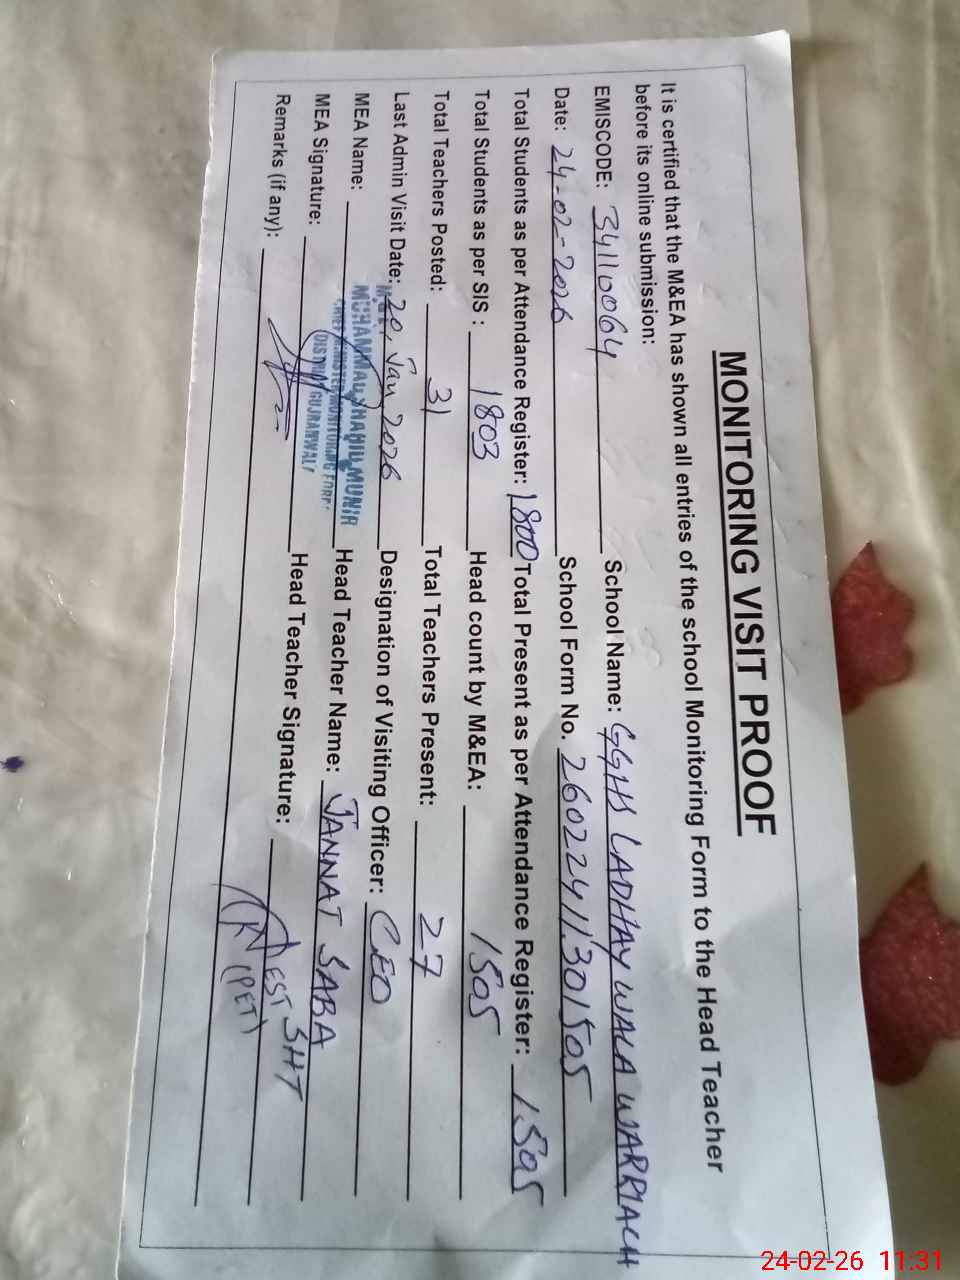 MONITORING VISIT PROOF
It is certified that the M&EA has shown all entries of the school Monitoring Form to the Head Teacher
before its online submission:
EMISCODE: 34110064 School Name: GGHS LADHAY WALA WARRIACH
Date: 24-02-2026 School Form No. 26022411301505
Total Students as per Attendance Register: 1800 Total Present as per Attendance Register: 1505
Total Students as per SIS : 1803 Head count by M&EA: 1505
Total Teachers Posted: 31 Total Teachers Present: 27
Last Admin Visit Date: 20, Jan 2026 Designation of Visiting Officer: CEO
MEA Name: MUHAMMAD MUNIR Head Teacher Name: JANNAT SABA
CHIEF MINISTER MONITORING FORC
DISTRICT GUJRANWALA
MEA Signature: Head Teacher Signature: EST SHT
Remarks (if any): (PET)
24-02-26 11:31